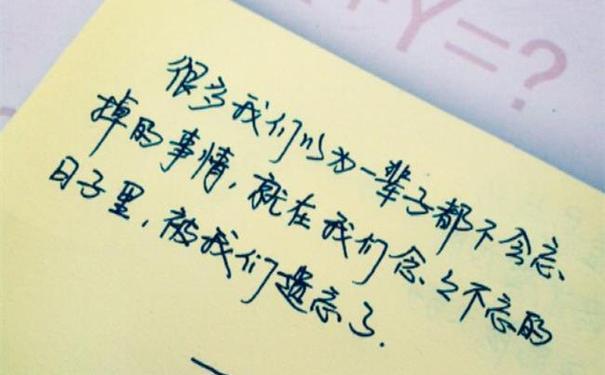 +Y=?
很多我们以为一辈子都不会忘
掉的事情,就在我们念之不忘的
日子里,被我们遗忘了.